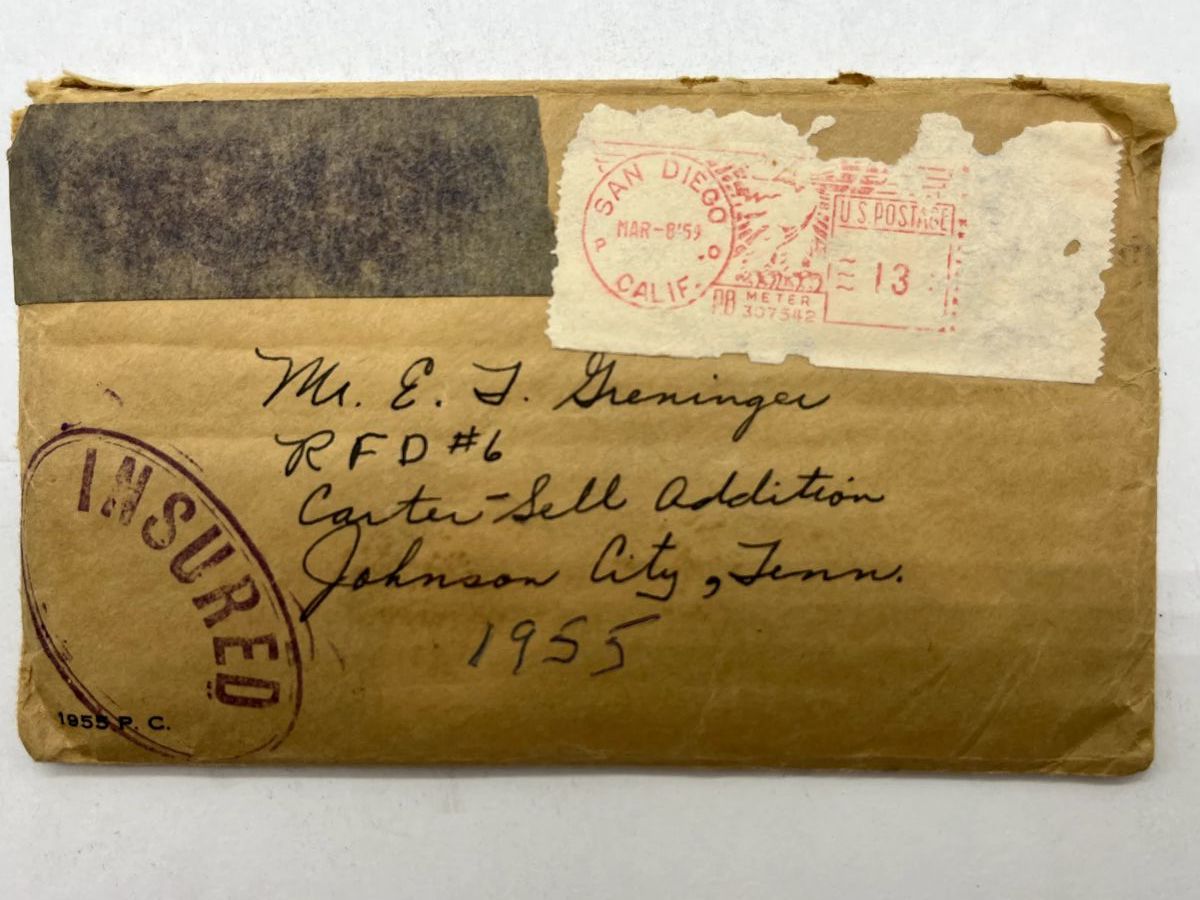 SAN DIEGO
MAR-8'59
P O
CALIF.
U.S. POSTAGE
13
PB METER
307542
Mr. E. T. Greninger
RFD #6
Carter-Sell Addition
Johnson City, Tenn.
1955
INSURED
1955 P. C.